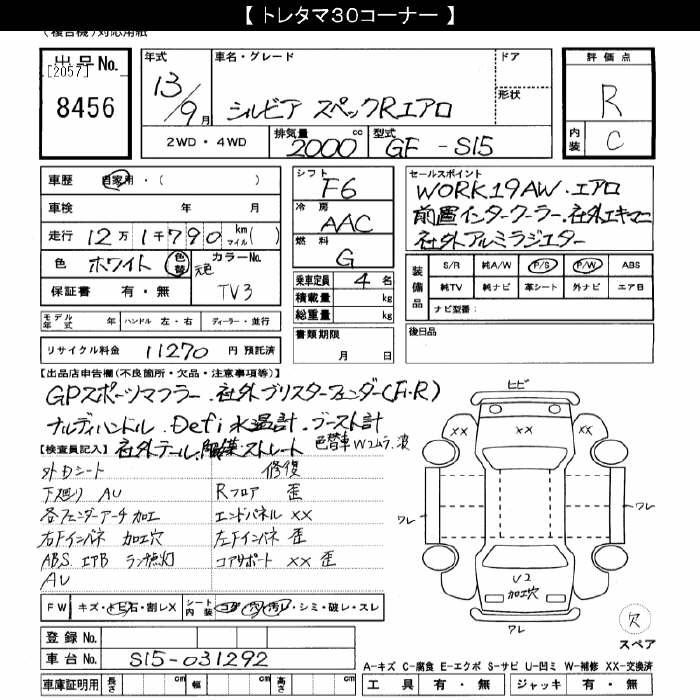 【 トレタマ30コーナー 】
(複合機)対応用紙
出品No.
[2057]
8456
年式
13/9月
車名・グレード
シルビア スペックRエアロ
ドア
形状
評価点
R
内装
C
2WD・4WD
排気量
2000 cc
型式
GF - S15
車歴 自家用・( )
車検 年 月
走行 12万1千790 km マイル( )
色 ホワイト 色替 カラーNo.
元色
TV3
保証書 有・無
シフト
F6
冷房
AAC
燃料
G
乗車定員 4 名
積載量 kg
総重量 kg
セールスポイント
WORK19AW・エアロ
前置インタークーラー.社外エキマニ
社外アルミラジエター
装備品
S/R 純A/W P/S P/W ABS
純TV 純ナビ 革シート 外ナビ エアB
ナビ型番:
モデル年式 年 ハンドル 左・右 ディーラー・並行
リサイクル料金 11270 円 預託済
書類期限
月 日
後日品
【出品店申告欄(不良箇所・欠品・注意事項等)】
GPスポーツマフラー.社外ブリスターフェンダー(F.R)
ナルディハンドル.Defi水温計.ブースト計
社外テール.触媒ストレート 色替車Wコムラ.波
【検査員記入】
外Dシート
下廻り AU
各フェンダーアーチ加工
右Fインパネ 加工穴
ABS. エアB ランプ感灯
AU
修復
Rフロア 歪
エンドパネル XX
左Fインパネ 歪
コアサポート XX 歪
ヒビ
XX
XX
XX
ワレ
ワレ
V2
加工穴
ワレ
欠
スペア
FW キズ・トビ石・割レX
シート内装 コゲ・穴・汚レ・シミ・破レ・スレ
登録No.
車台No. S15-031292
A-キズ C-腐食 E-エクボ S-サビ U-凹ミ W-補修 XX-交換済
車庫証明用 長さ cm 幅 cm 高さ cm
工具 有・無 ジャッキ 有・無